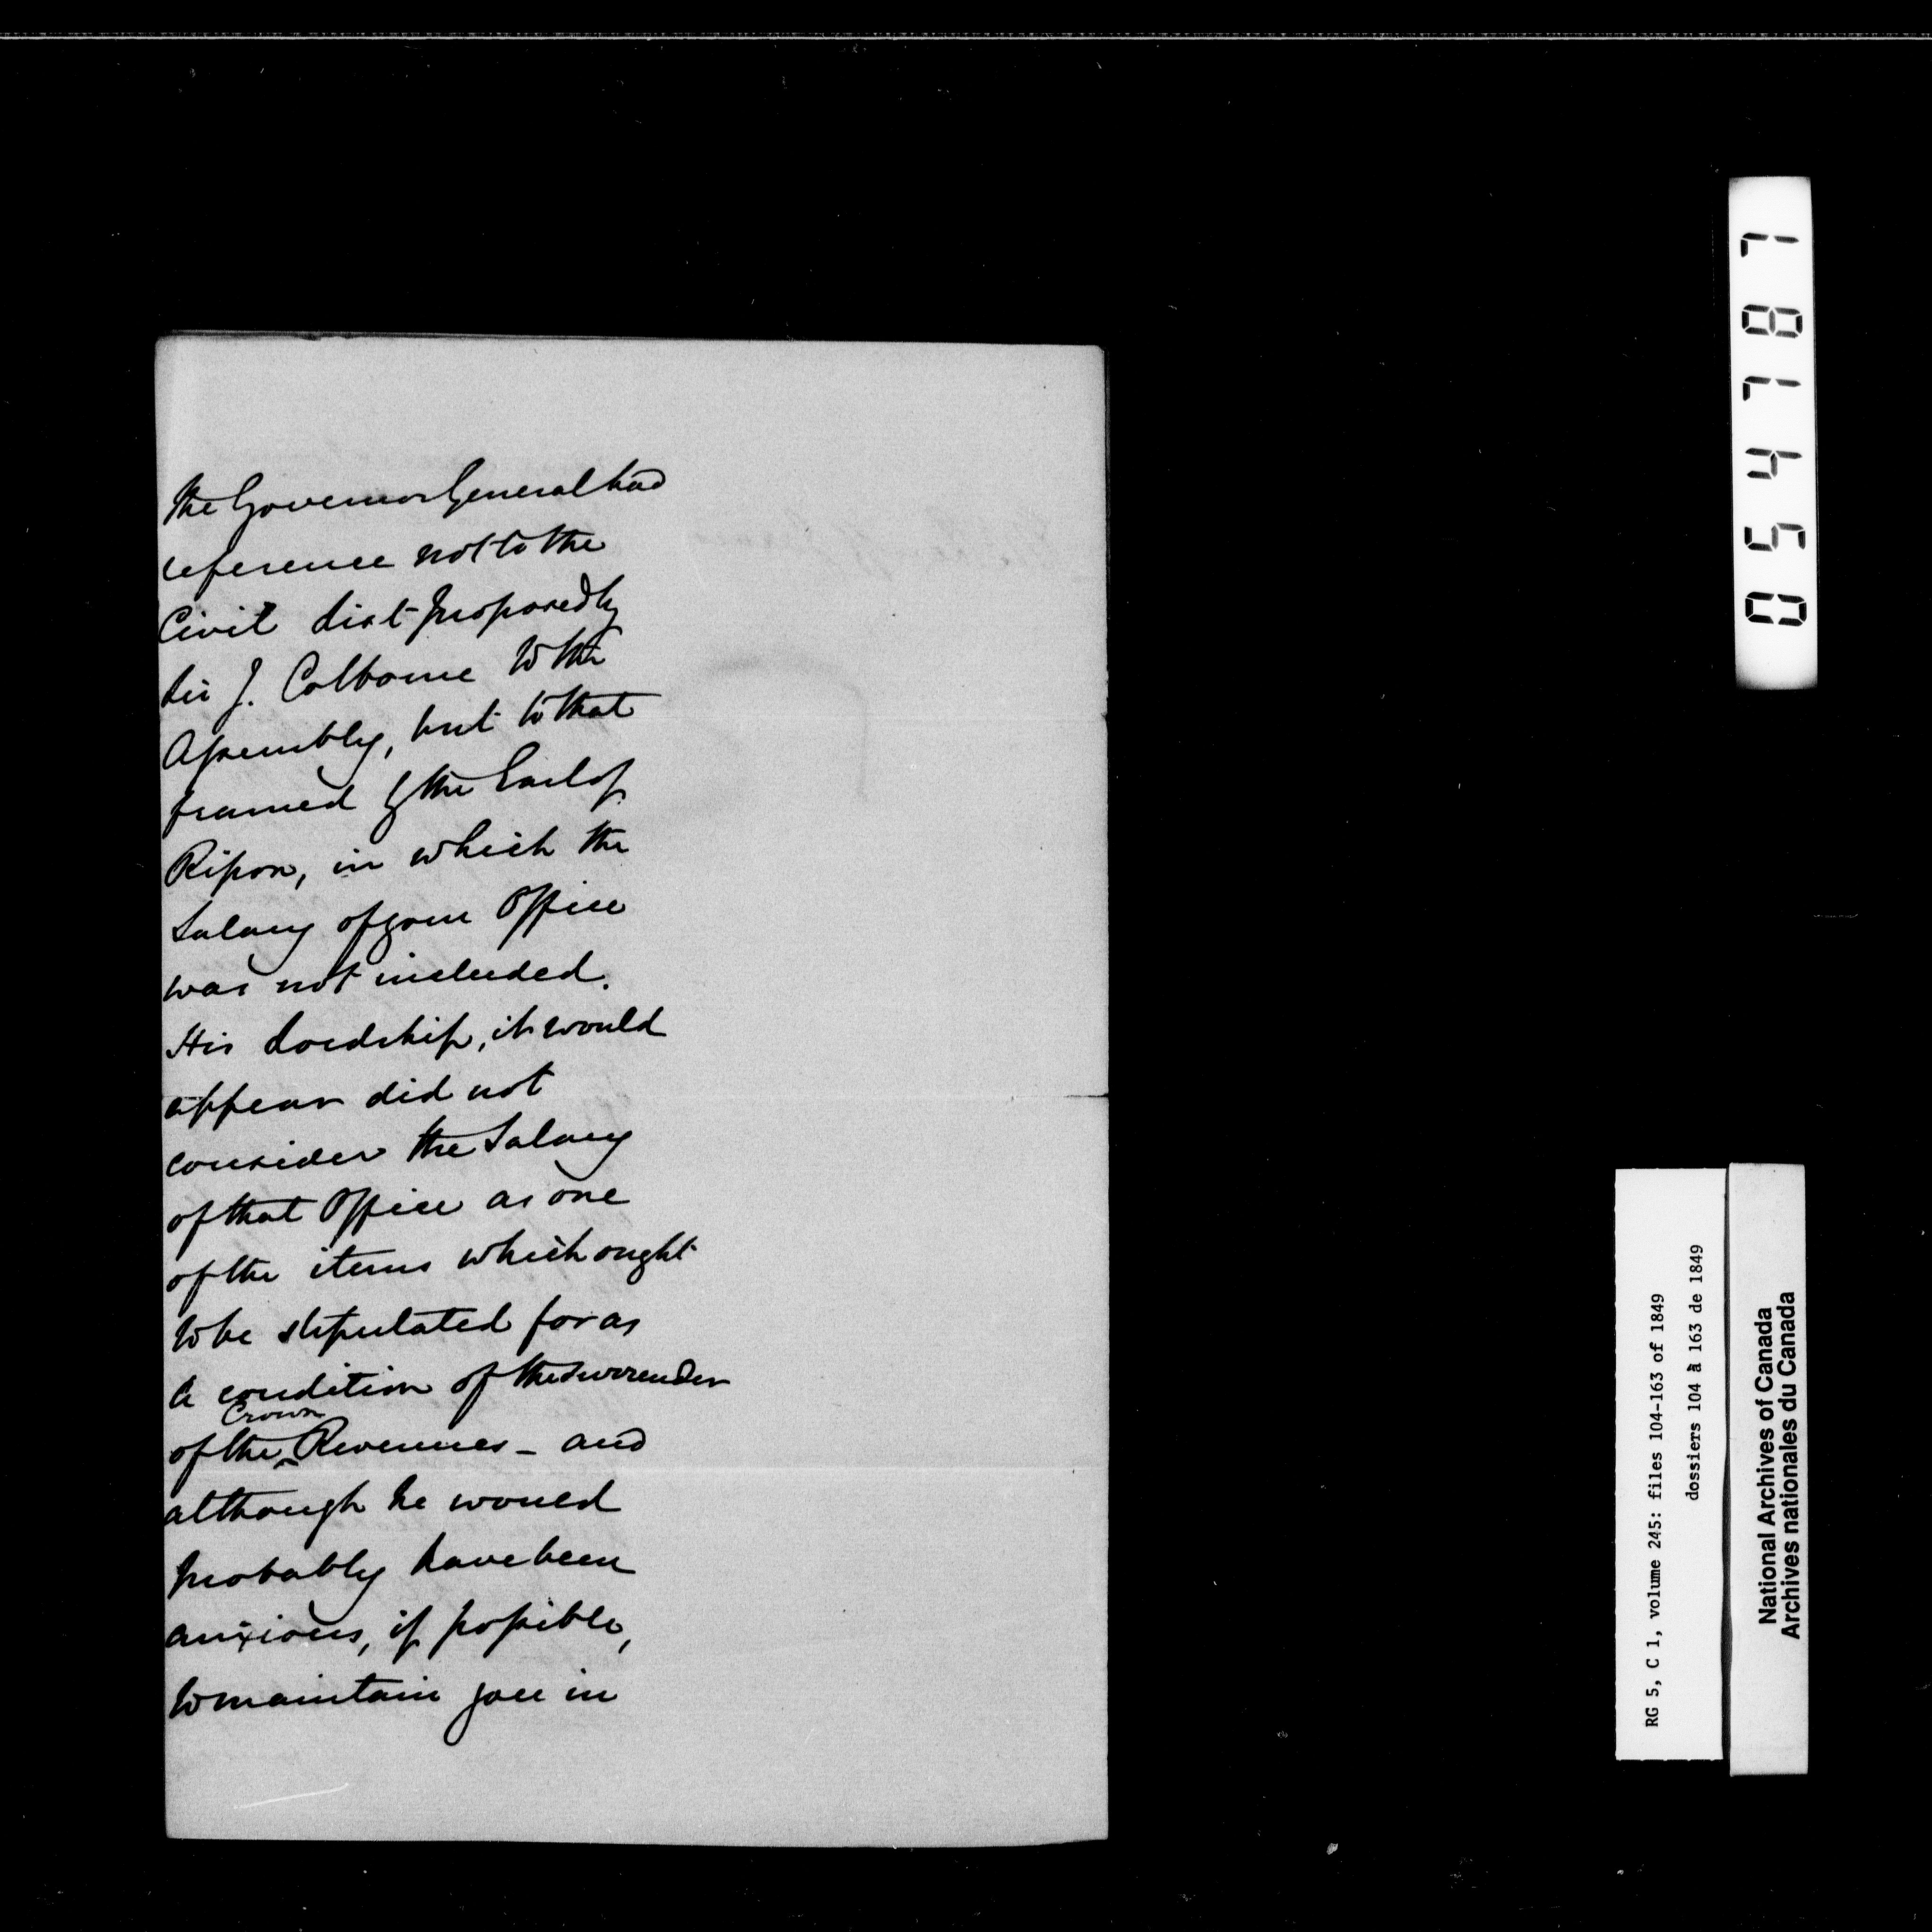 the Governor General had
reference not to the
Civil List proposed by
Sir J. Colborne to the
Assembly, but to that
framed by the Earl of
Ripon, in which the
Salary of your Office
was not included.
His Lordship, it would
appear did not
consider the Salary
of that Office as one
of the items which ought
to be stipulated for as
a condition of the surrender
Crown
of the ^ Revenues - and
although he would
probably have been
anxious, if possible,
to maintain you in
054787
RG 5, C 1, volume 245: files 104-163 of 1849
dossiers 104 à 163 de 1849
National Archives of Canada
Archives nationales du Canada